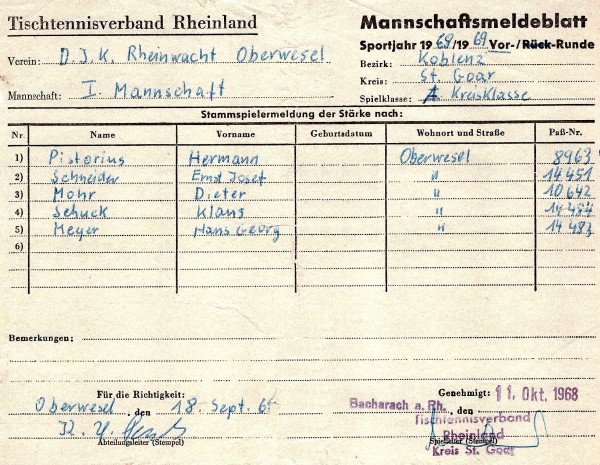 Tischtennisverband Rheinland
Mannschaftsmeldeblatt
Sportjahr 1969/1969 Vor-/Rück-Runde
Verein: D.J.K. Rheinwacht Oberwesel
Bezirk: Koblenz
Kreis: St. Goar
Mannschaft: I. Mannschaft
Spielklasse: A Kreisklasse
Stammspielermeldung der Stärke nach:
Nr. Name Vorname Geburtsdatum Wohnort und Straße Paß-Nr.
1) Pistorius Hermann Oberwesel 8963
2) Schneider Ernst Josef " 14451
3) Mohr Dieter " 10642
4) Schuck Klaus "
5) Meyer Hans Georg "
6)
Bemerkungen:
Für die Richtigkeit:
Genehmigt: 11. Okt. 1968
Oberwesel, den 18. Sept.
Bacharach a. Rh., den
Tischtennisverband
Rheinland
Abteilungsleiter (Stempel)
Spielleiter (Stempel)
Kreis St. Goar